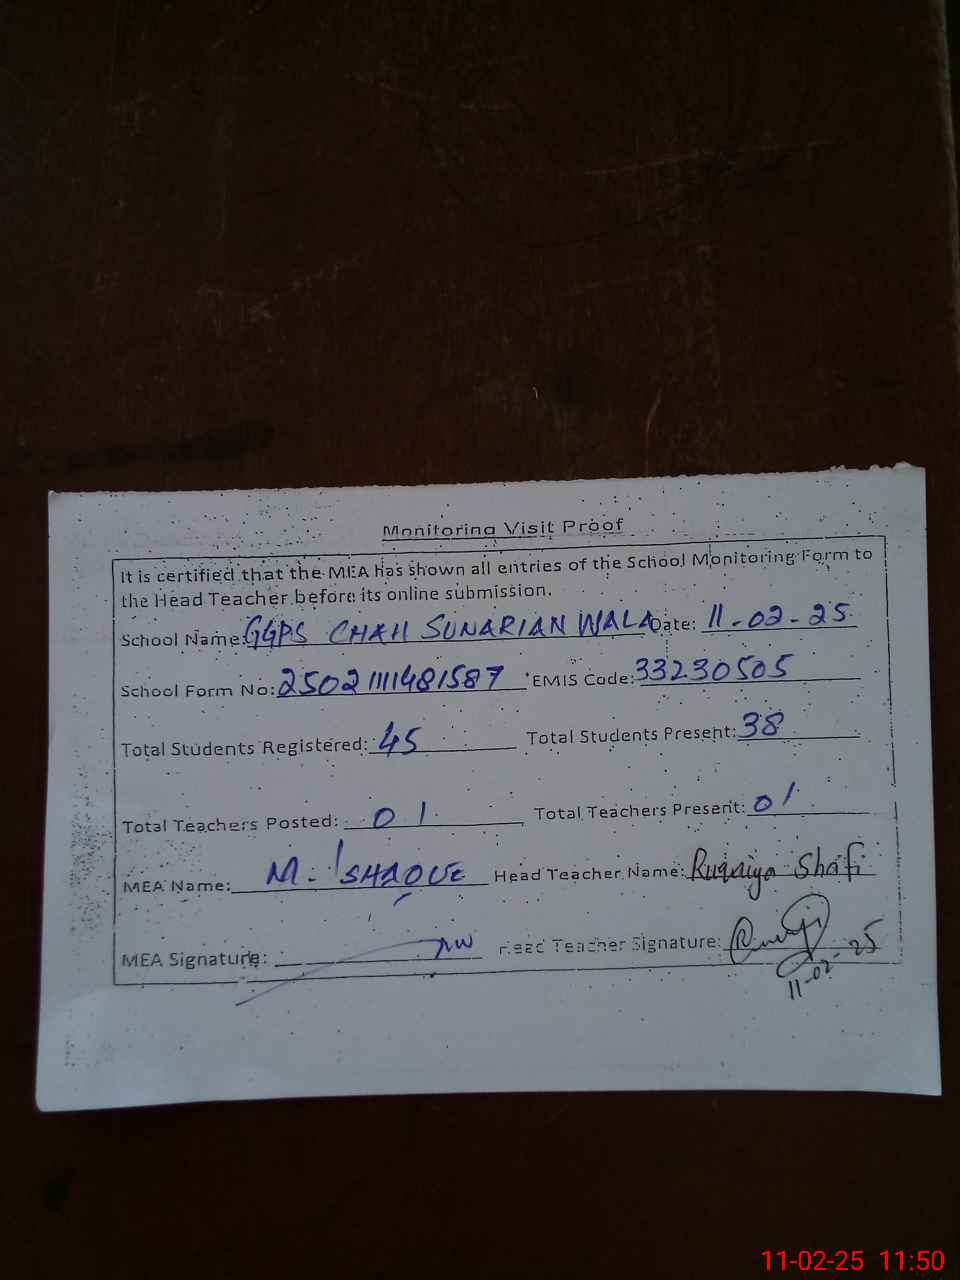 Monitoring Visit Proof
It is certified that the MEA has shown all entries of the School Monitoring Form to
the Head Teacher before its online submission.
School Name: GGPS CHAH SUNARIAN WALA Date: 11-02-25
School Form No: 2502111481587 EMIS Code: 33230505
Total Students Registered: 45 Total Students Present: 38
Total Teachers Posted: 01 Total Teachers Present: 01
MEA Name: M. ISHAQUE Head Teacher Name: Ruqaiya Shafi
MEA Signature: Head Teacher Signature:
11-02-25
11-02-25 11:50